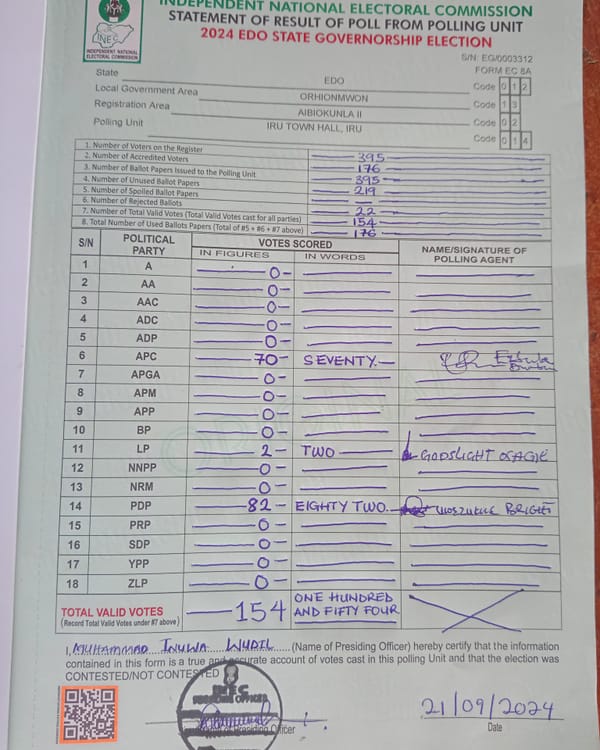 INDEPENDENT NATIONAL ELECTORAL COMMISSION
STATEMENT OF RESULT OF POLL FROM POLLING UNIT
2024 EDO STATE GOVERNORSHIP ELECTION
INEC
INDEPENDENT NATIONAL
ELECTORAL COMMISSION
S/N: EG/0003312
FORM EC 8A
State EDO Code 0 1 2
Local Government Area ORHIONMWON Code 1 3
Registration Area AIBIOKUNLA II Code 0 2
Polling Unit IRU TOWN HALL, IRU Code 0 1 4
1. Number of Voters on the Register 395
2. Number of Accredited Voters 176
3. Number of Ballot Papers Issued to the Polling Unit 395
4. Number of Unused Ballot Papers 219
5. Number of Spoiled Ballot Papers —
6. Number of Rejected Ballots 22
7. Number of Total Valid Votes (Total Valid Votes cast for all parties) 154
8. Total Number of Used Ballots Papers (Total of #5 + #6 + #7 above) 176
S/N POLITICAL PARTY VOTES SCORED NAME/SIGNATURE OF POLLING AGENT
IN FIGURES IN WORDS
1 A 0
2 AA 0
3 AAC 0
4 ADC 0
5 ADP 0
6 APC 70 SEVENTY
7 APGA 0
8 APM 0
9 APP 0
10 BP 0
11 LP 2 TWO GODSLIGHT OSAGIE
12 NNPP 0
13 NRM 0
14 PDP 82 EIGHTY TWO BRIGHT
15 PRP 0
16 SDP 0
17 YPP 0
18 ZLP 0
TOTAL VALID VOTES 154 ONE HUNDRED AND FIFTY FOUR
(Record Total Valid Votes under #7 above)
I, MUHAMMAD INUWA WUDIL (Name of Presiding Officer) hereby certify that the information
contained in this form is a true and accurate account of votes cast in this polling Unit and that the election was
CONTESTED/NOT CONTESTED
INEC
PRESIDING OFFICER
21/09/2024
Presiding Officer
Date